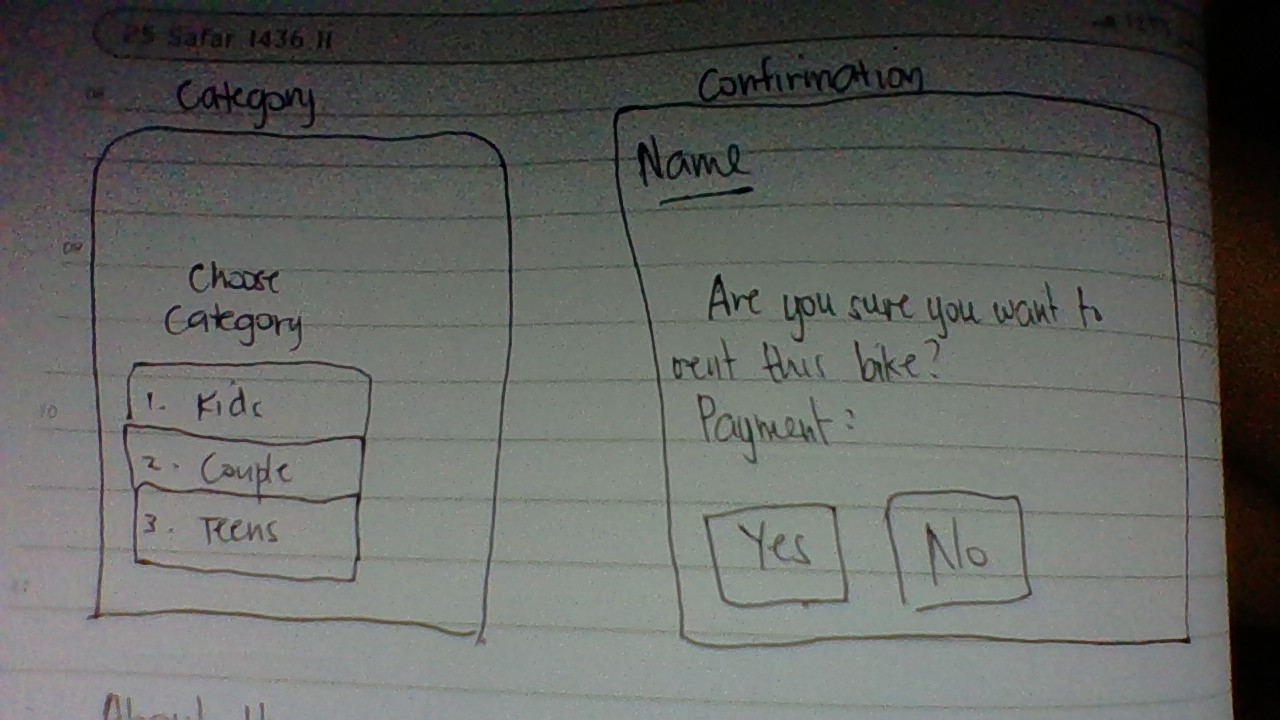 25 Safar 1436 H
Category
Choose
Category
1. Kids
2. Couple
3. Teens
Confirmation
Name
Are you sure you want to
rent this bike?
Payment:
Yes
No
09
10
About